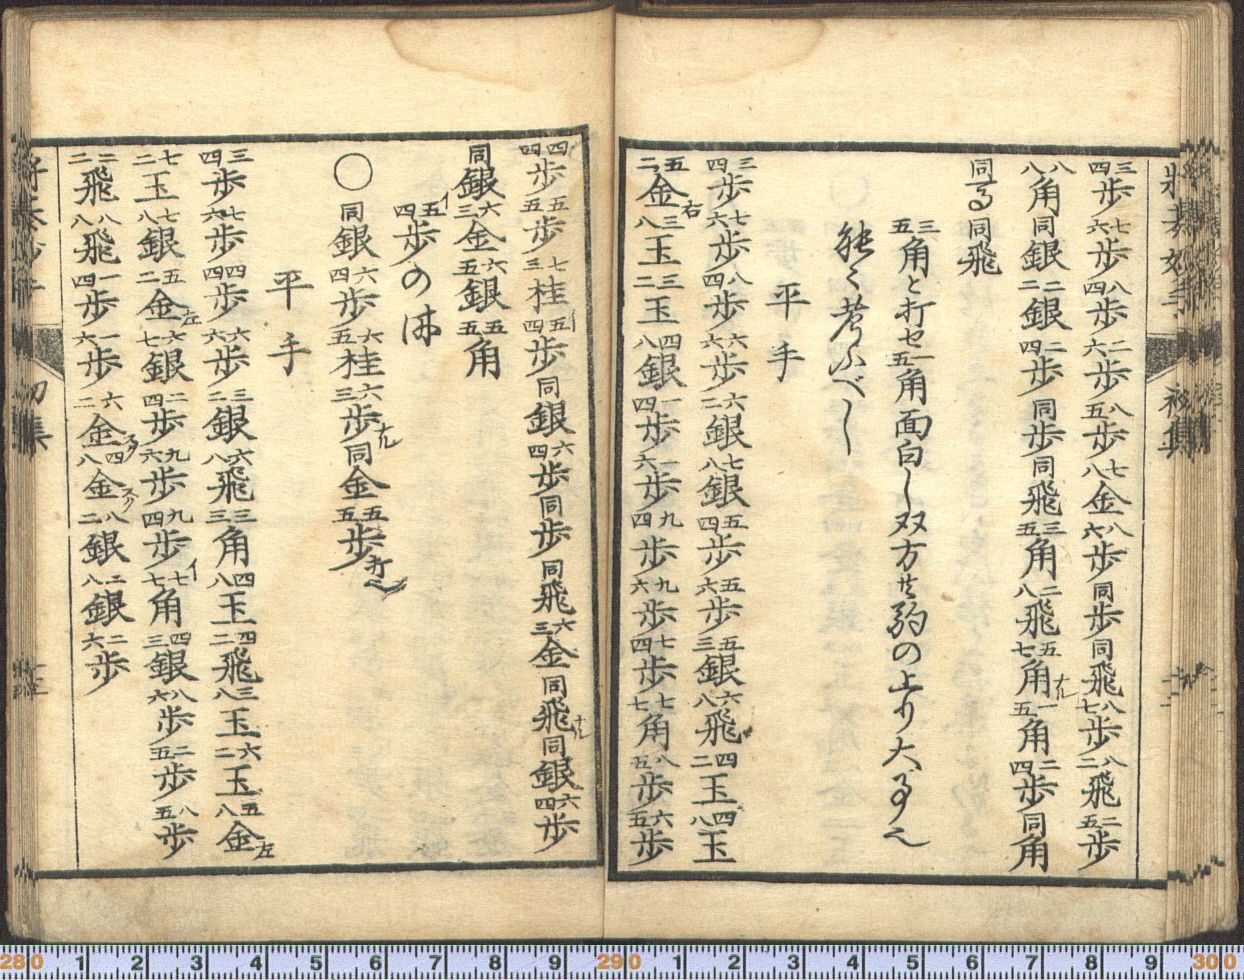 将棊妙手 初集
三四歩七六歩八四歩二六歩八五歩七八金八六歩同歩同飛八七歩八二飛二五歩
八八角同銀二二銀二四歩同歩同飛三五角二八飛五七角ナル一五角二四歩同角
同馬同飛
三五角と打セ一五角面白し双方共駒の上り大事也
能々考ふべし
平手
三四歩七六歩八四歩六六歩六二銀七八銀五四歩五六歩五三銀六八飛四二玉四八玉
五二金右三八玉三二玉四八銀一四歩一六歩九四歩九六歩七四歩七七角八五歩六五歩
四四歩五五歩七三桂五四歩イ同銀六四歩同歩同飛六三金同飛ナル同銀六四歩
同銀六三金六五銀五五角
イ五四歩の時
〇同銀六四歩六五桂六三歩ナル同金五五歩打也
平手
三四歩七六歩四四歩六六歩三二銀六八飛三三角四八玉四二飛三八玉六二玉五八金左
七二玉七八銀五二金左六七銀二四歩九六歩九四歩七七角イ四三銀八六歩二五歩八五歩
二二飛八八飛一四歩一六歩六二金四八金八二銀二八銀二六歩